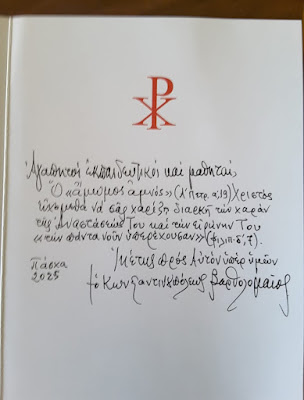 Ἀγαπητοί ἐκπαιδευτικοί καί μαθηταί,
Ὁ «ἄμωμος ἀμνός» (Α΄ Πετρ. α΄, 19) Χριστός
εὐχόμεθα νά σᾶς χαρίζῃ διαρκῆ τήν χαράν
τῆς Ἀναστάσεώς Του καί τήν εἰρήνην Του
«τήν πάντα νοῦν ὑπερέχουσαν» (Φιλιπ. δ΄, 7).
Πάσχα
2025
Ἱκέτης πρός Αὐτόν ὑπέρ ὑμῶν
ὁ Κωνσταντινουπόλεως Βαρθολομαῖος